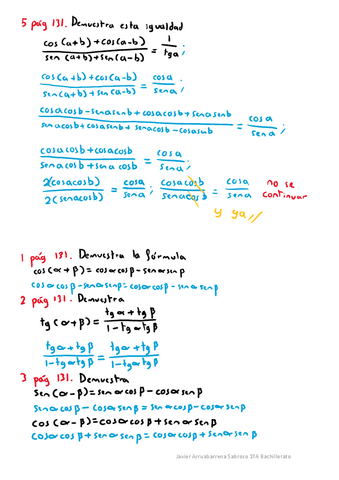 5 pág 131. Demuestra esta igualdad
cos(a+b)+cos(a-b) / sen(a+b)+sen(a-b) = 1 / tga ;
cos(a+b)+cos(a-b) / sen(a+b)+sen(a-b) = cosa / sena ;
cosacosb-senasenb+cosacosb+senasenb / senacosb+cosasenb+senacosb-cosasub = cosa / sena ;
cosacosb+cosacosb / senacosb+senacosb = cosa / sena ;
2(cosacosb) / 2(senacosb) = cosa / sena ; cosacosb / senacosb = cosa / sena no se continuar
y ya //
1 pág 131. Demuestra la fórmula
cos(α+β)=cosαcosβ-senαsenβ
cosαcosβ-senαsenβ=cosαcosβ-senαsenβ
2 pág 131. Demuestra
tg(α+β)= tgα+tgβ / 1-tgαtgβ
tgα+tgβ / 1-tgαtgβ = tgα+tgβ / 1-tgαtgβ
3 pág 131. Demuestra
sen(α-β)=senαcosβ-cosαsenβ
senαcosβ-cosαsenβ=senαcosβ-cosαsenβ
cos(α-β)=cosαcosβ+senαsenβ
cosαcosβ+senαsenβ=cosαcosβ+senαsenβ
Javier Arruabarrena Sabroso 1ºA Bachillerato